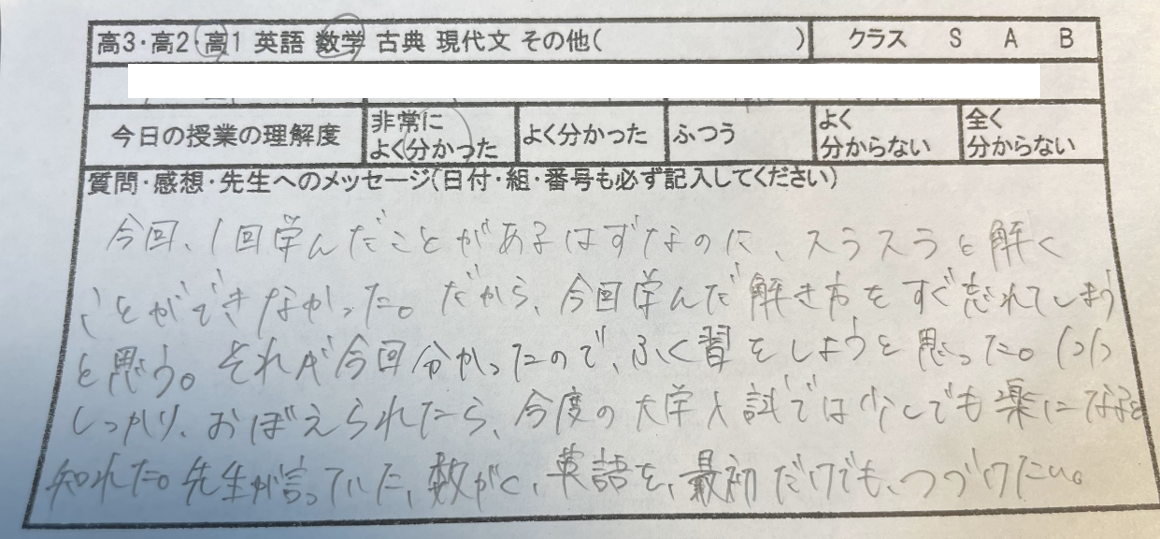 高3・高2・高1 英語 数学 古典 現代文 その他( ) クラス S A B
今日の授業の理解度 非常に よく分かった ふつう よく 全く
よく分かった 分からない 分からない
質問・感想・先生へのメッセージ(日付・組・番号も必ず記入してください)
今回、1回学んだことがあるはずなのに、スラスラと解く
ことができなかった。だから、今回学んだ解き方をすぐ忘れてしまう
と思う。それが今回分かったので、ふく習をしようと思った。
しっかり、おぼえられたら、今度の大学入試では少しでも楽になると
知れた。先生が言っていた、数がく、英語を、最初だけでも、つづけたい。